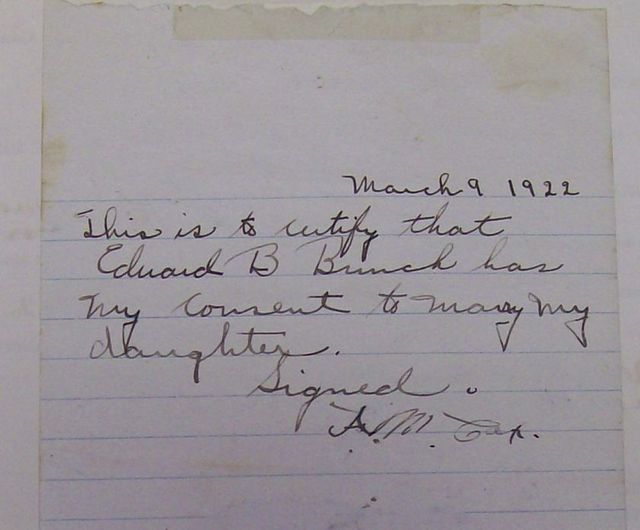 March 9 1922
This is to certify that
Eduard B Bunch has
my consent to mary my
daughter.
Signed.
A. M. Cox.